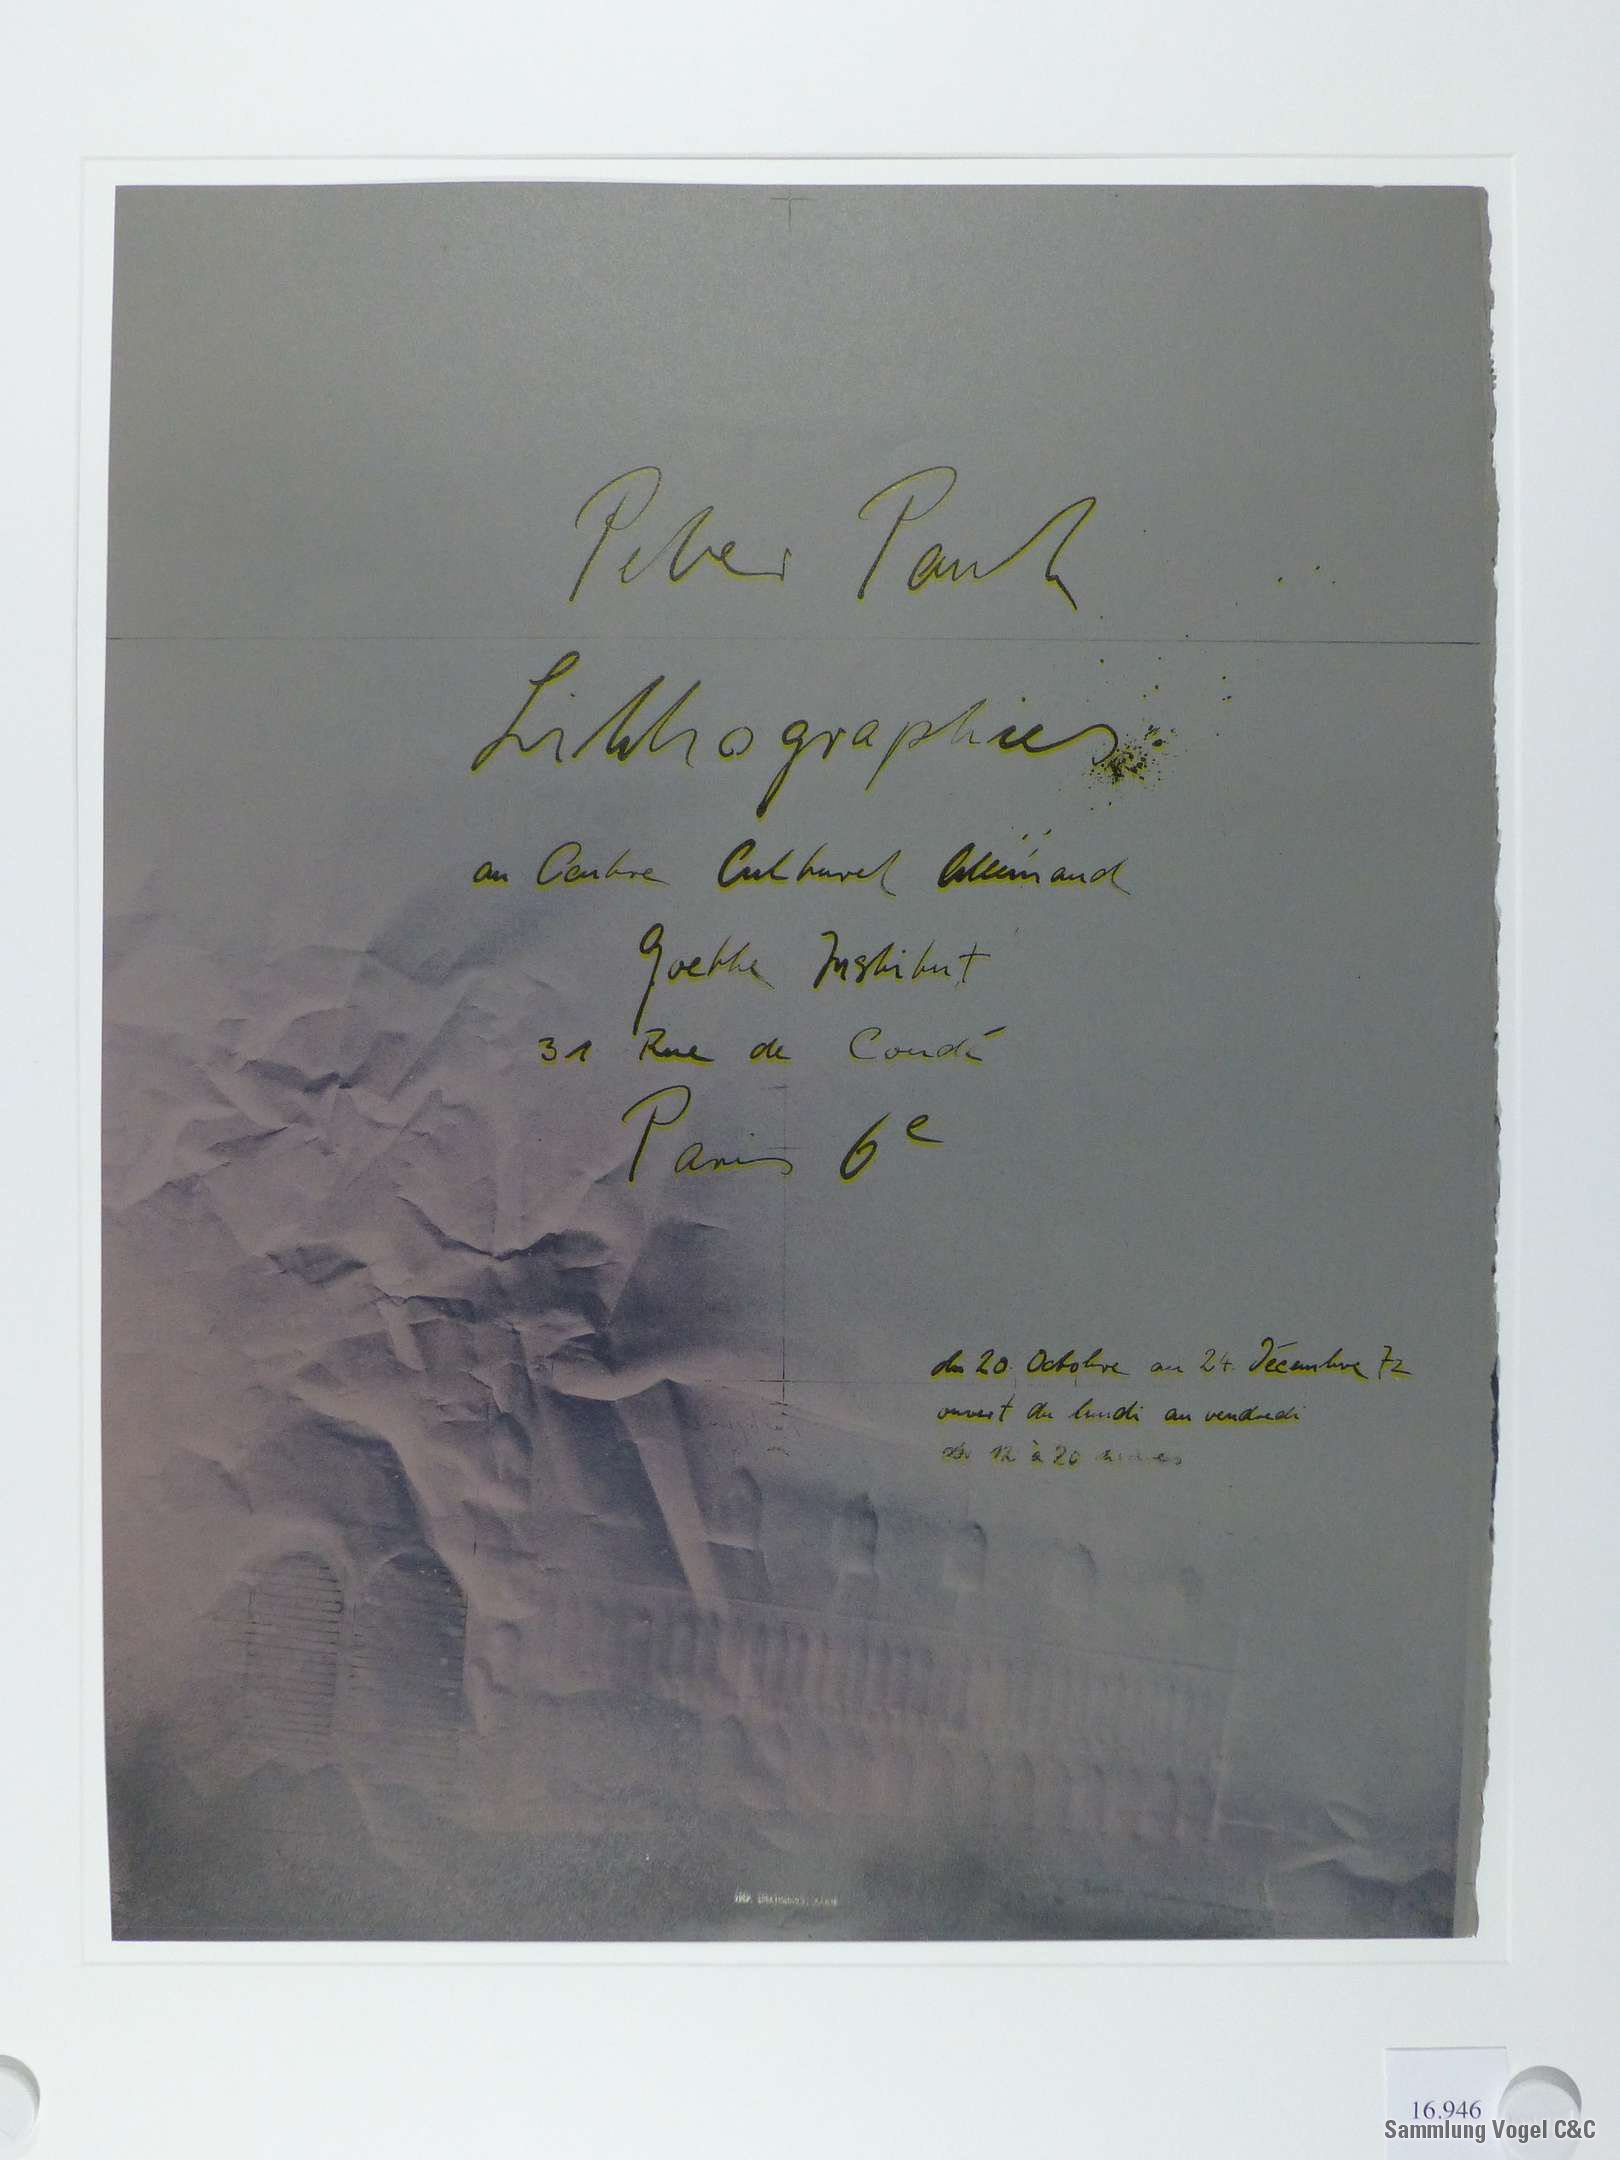 Peter Paul
Lithographies
au Centre Culturel Allemand
Goethe Institut
31 Rue de Condé
Paris 6e
du 20. Octobre au 24. Décembre 72
ouvert du lundi au vendredi
de 12 à 20 heures
16.946
Sammlung Vogel C&C